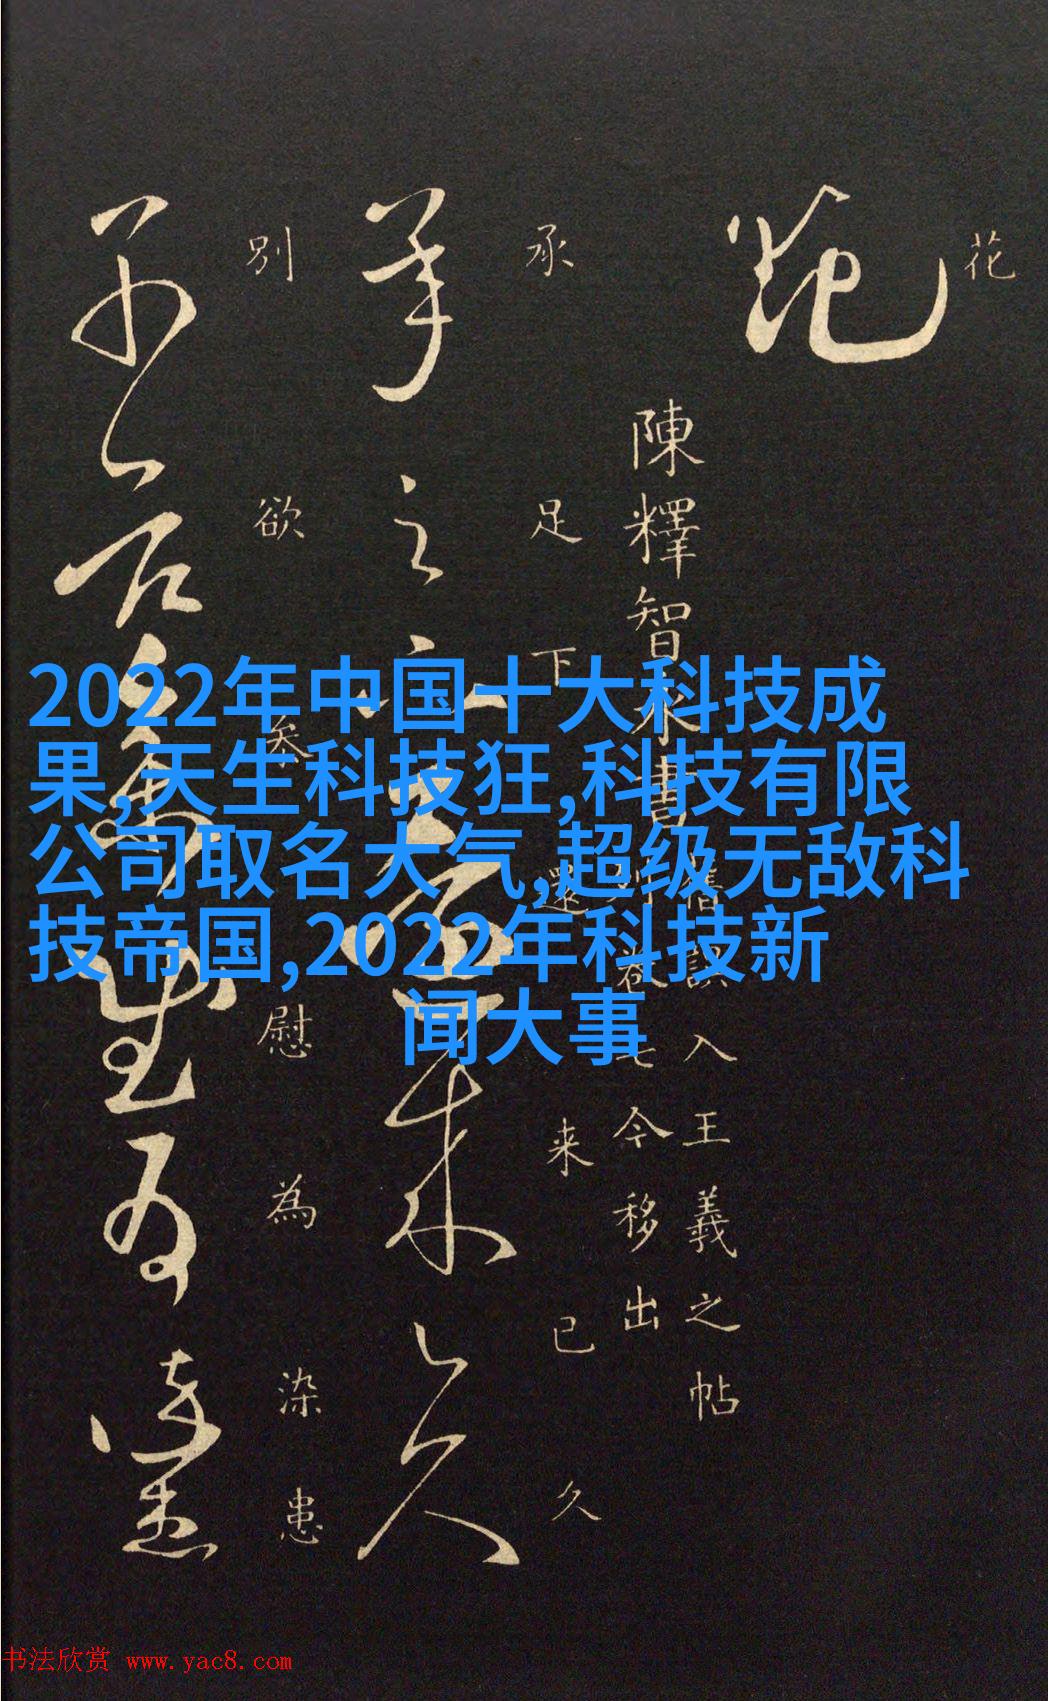 花
陳釋智永書
舊誤入王羲之帖
列卷七今移出
承足下還来已久
別欲参慰為染患
2022年中国十大科技成
果,天生科技狂,科技有限
公司取名大气,超级无敌科
技帝国,2022年科技新
闻大事
书法欣赏 www.yac8.com